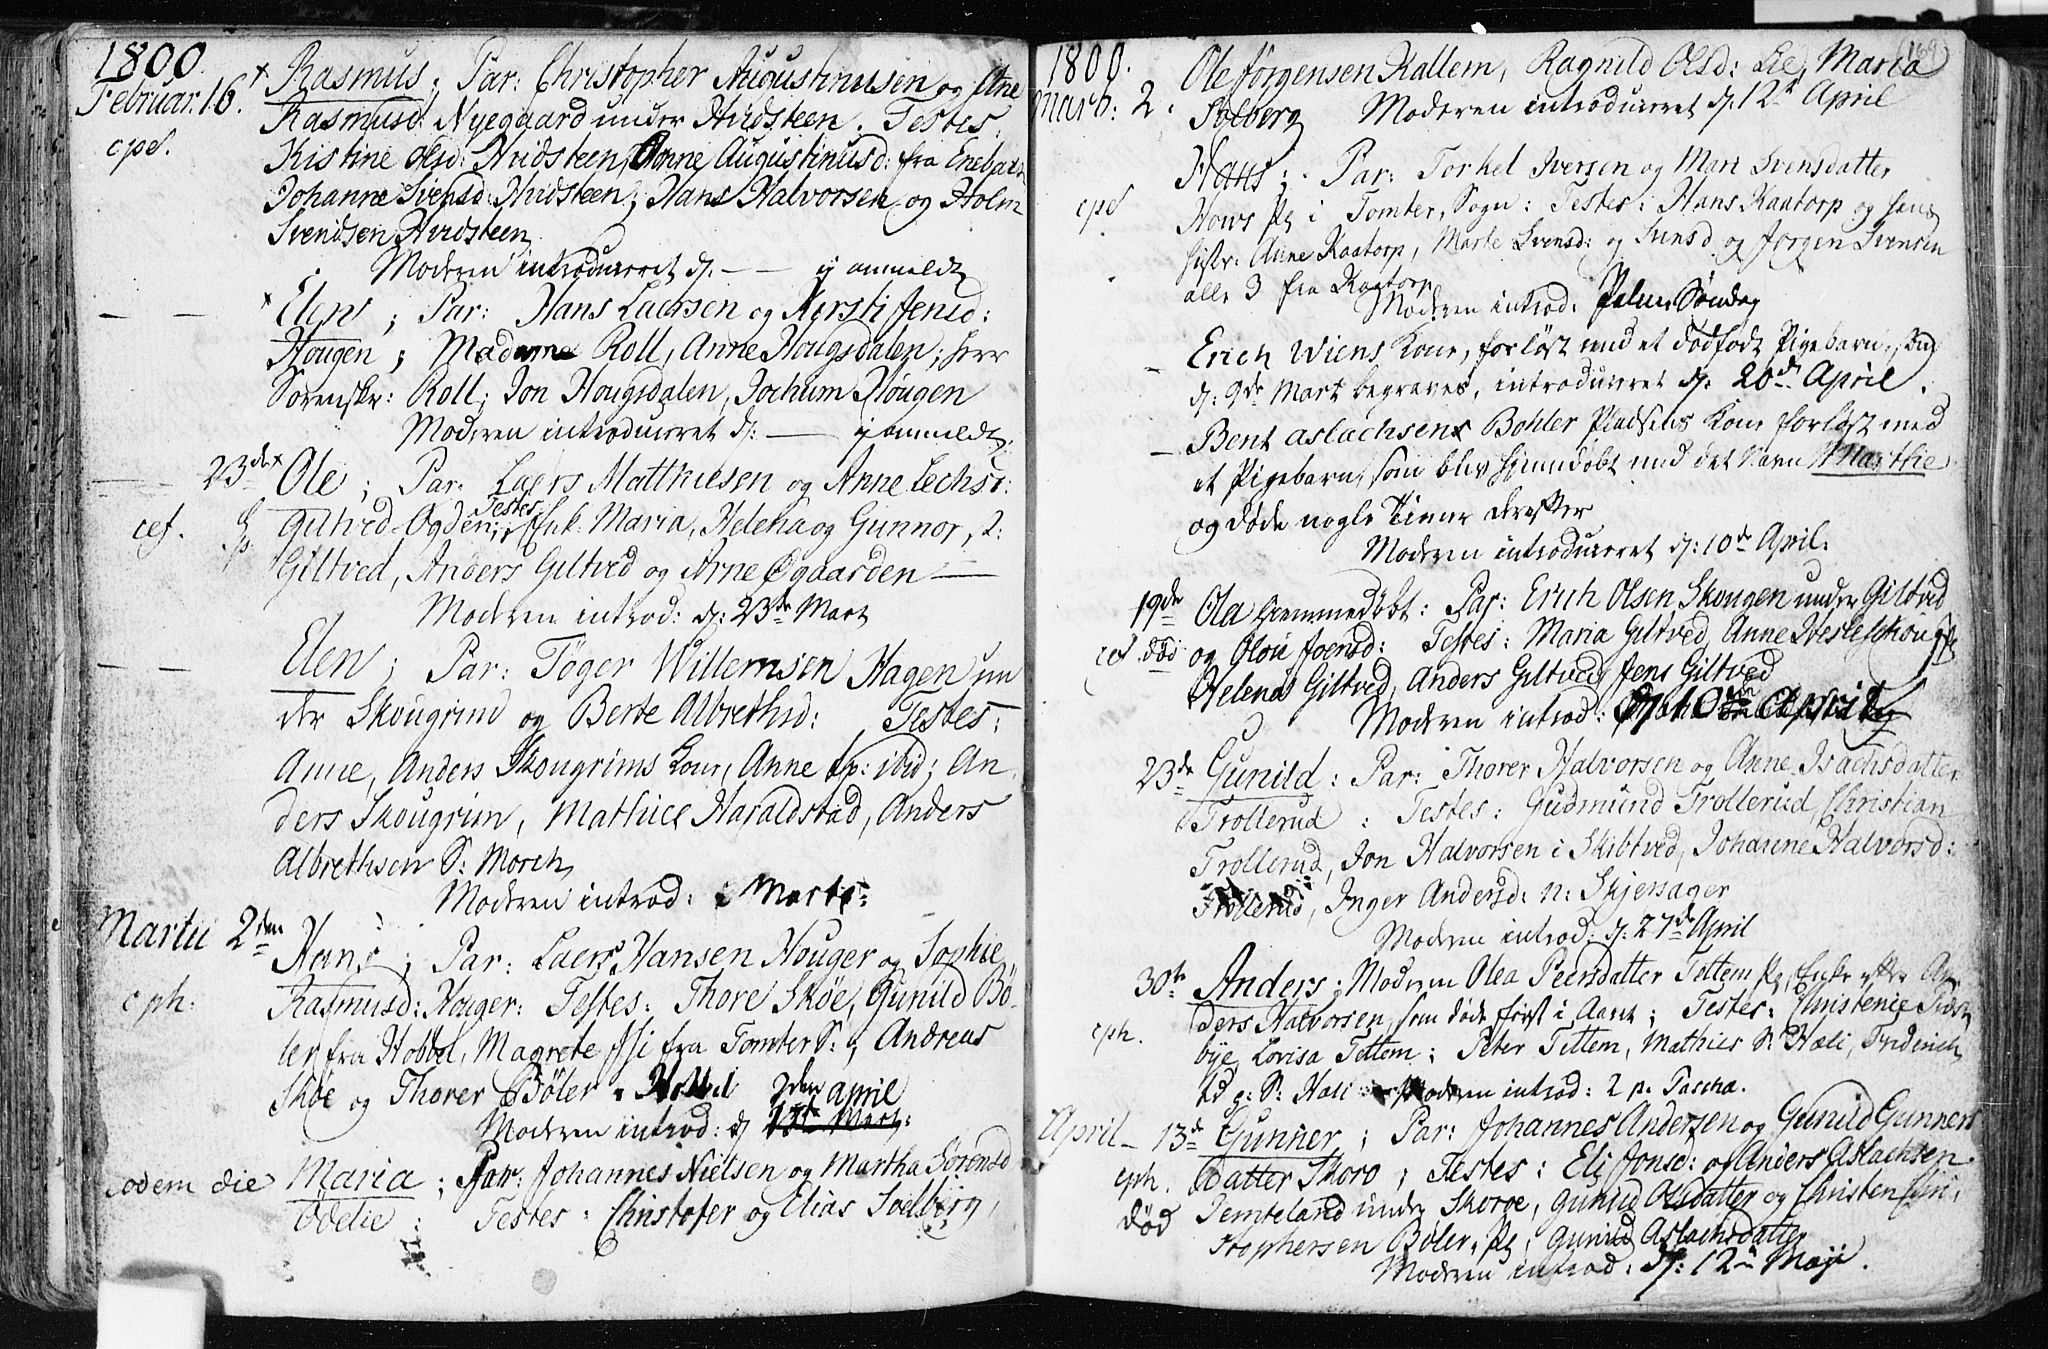 1800.
Februar. 16. Rasmus; Par: Christopher Augustinusen og Ane
Rasmusd: Nyegaard under Hvidsteen. Testes:
cpd. Kistine Olsd: Hvidsteen, Anne Augustinusd: fra Enebak
Johanne Svensd: Hvidsteen; Hans Halvorsen og Holm
Svendsen Hvidsteen
Moderen introduceret d: — — ej anmeldt
— — Elen; Par: Hans Laersen og Kirsti Jensd:
Hougen; Madame Roll, Anne Hougsdalen; Herr
Sorenskr: Roll; Jon Hougsdalen, Jochum Hougen
Moderen introduceret d: — ej anmeldt.
— — 23de Ole; Par: Laers Matthiesen og Anne
cef. Giltved Ogden; Testes: Maria, Helena og Gunnor, 2:
Giltved, Anders Giltved og Arne Ogaarden —
Moderen introd: d: 23de Mart
— — Elen; Par: Töger Willemsen Hagen un
der Skougrim og Berte Albrethsd: Testes:
Anne, Anders Skougrims Kone, Anne p: ibid; An
ders Skougrim, Mathies Haraldstad, Anders
Albrethsen S: Morch
Moderen introd: Marts:
Martii 2den Hans; Par: Laers Hansen Houger og Sophie
cph. Rasmusd: Houger: Testes: Thore Skøe, Gunild Bø-
ler fra Hobbøl, Magrete fra Tomter S:; Andreas
Skøe og Thorer Bøler. Hobbøl 2den april
Moderen introd: d 13de Mart:
eodem die Maria; Par: Johannes Nielsen og Martha Sörensd
Ödelie: Testes: Christofer og Elias Solberg,
1800. (169)
Marti: 2. Ole Jörgensen Kallem, Ragnild Olsd: Lie, Maria
Solberg Moderen introduceret d. 12t April
Hans; Par: Torkel Iversen og Mari Svensdatter
cpd Hows pl i Tomter Sogn: Testes: Hans Kaatorp og hans
Hustr: Anne Kaatorp, Marte Svensd: og Svensd og Jörgen Svensen
alle 3 fra Kaatorp
Moderen introd: Palme Söndag
— Erich Wiens Kone, forlöst med et dödfödt Pigebarn,
d: 9de Mart begravet, introduceret d: 20de April.
— Bent Aslachsens Bohler Pladsens Kone forlöst med
et Pigebarn, som blev hjemmdöbt med det Navn Marthe
og döde nogle Timer derefter
Moderen introduceret d: 10de April:
19de Ola hiemmedöbt: Par: Erich Olsen Skougen under Giltved
cef. död og Olou Joensd: Testes: Maria Giltved, Anne
Helena Giltved, Anders Giltved, Jens Giltved
Moderen introd: April
23de Gunild: Par: Thorer Halvorsen og Anne Isachsdatter
Trollerud: Testes: Gudmund Trollerud, Christian
Trollerud, Jon Halvorsen i Skibtved, Johanne Halvorsd:
Trollerud, Inger Andersd: n: Skjersager
Moderen introd: d: 27de April
30te Anders; Moderen Olea Peersdatter Tottem pl, Enke efter An
cph. ders Halvorsen, som döde först i Aaret; Testes: Christenie
bye, Lovisa Tottem; Peter Tottem, Mathies S: Hæli, Friderich
S: Hæli Moderen introd: 2 p. Pascha.
April – 13de Gunner; Par: Johannes Andersen og Gunild Gunners
cph. datter Skoro; Testes: Eli Jonsd: og Anders Aslachsen
död Temteland under Skoroe, Gunild Olsdatter og Christen Chri-
stophersen Bøler pl, Gunild Aslachsdatter
Moderen introd: d: 12te Maji.